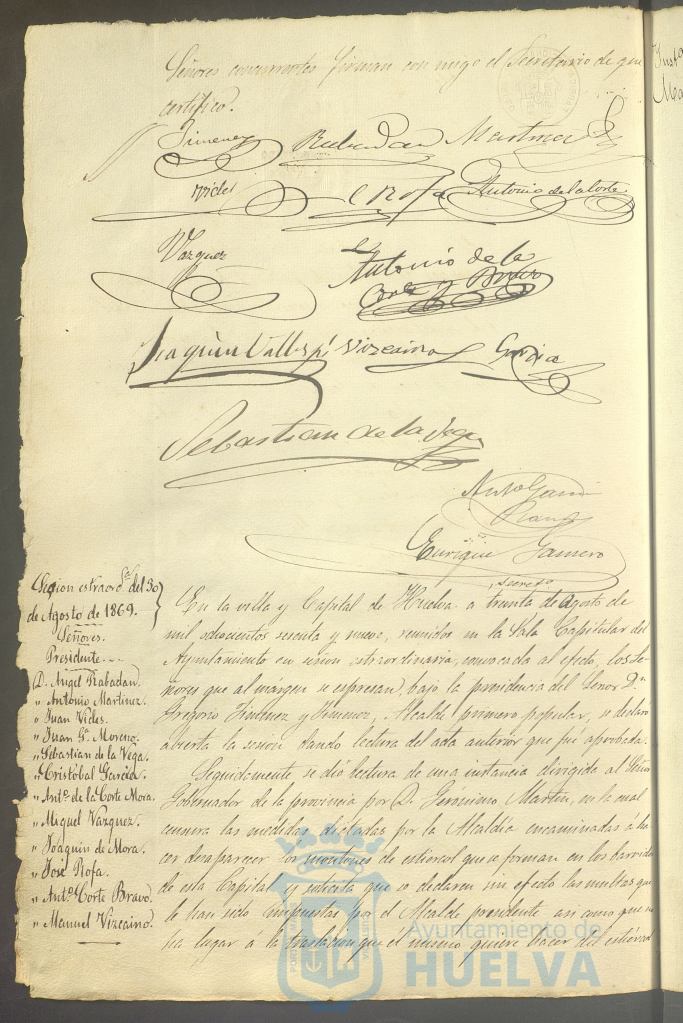 Señores concurrentes firman con migo el Secretario de que
certifico.
Jimenez Rabadan Martinez
Vides J Rofa Antonio de la Corte
Vazquez Antonio de la
Corte y Bravo
Joaquin Vizcaino Garcia
Sebastian de la Vega
Anto Garcia
Enrique Gamero
Secreto
Sesion estraord del 30
de Agosto de 1869.
Señores.
Presidente
D. Angel Rabadan.
" Antonio Martinez.
" Juan Vides.
" Juan Ga. Moreno.
" Sebastian de la Vega.
" Cristóbal Garcia.
" Anto. de la Corte Mora.
" Miguel Vazquez.
" Joaquin de Mora.
" José Rofa.
" Anto. Corte Bravo.
" Manuel Vizcaino.
En la villa y Capital de Huelva a treinta de Agosto de
mil ochocientos sesenta y nueve, reunidos en la Sala Capitular del
Ayuntamiento en sesion estraordinaria, convocada al efecto, los Se-
ñores que al márgen se espresan, bajo la presidencia del Señor Dn
Gregorio Jimenez y Jimenez, Alcalde primero popular, se declaró
abierta la sesion dando lectura del acta anterior que fué aprobada.
Seguidamente se dió lectura de una instancia dirigida al Señor
Gobernador de la provincia por D. Jerónimo Martin, en la cual
censura las medidas dictadas por la Alcaldía encaminadas á ha
cer desaparecer los montones de estiercol que se forman en los barrios
de esta Capital y solicita que se declaren sin efecto las multas que
le han sido impuestas por el Alcalde presidente asi como que no
ha lugar á la traslacion que él mismo quiere hacer del estiercol
Ayuntamiento de
HUELVA